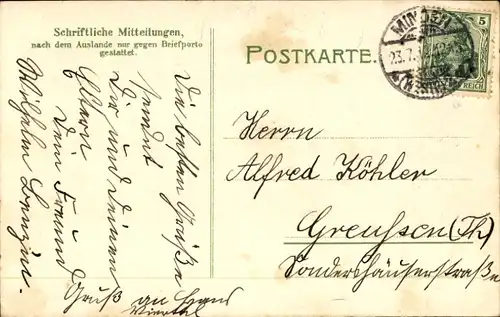 Schriftliche Mitteilungen,
nach dem Auslande nur gegen Briefporto
gestattet.
POSTKARTE.
MINDEN
23.7.
5
REICH
Die besten Grüße
sendet
Dir und Deinen
Eltern
Dein Freund
Wilhelm
Gruß an Hans
Viertel
Herrn
Alfred Köhler
Greußen (Th)
Sondershäuserstraße